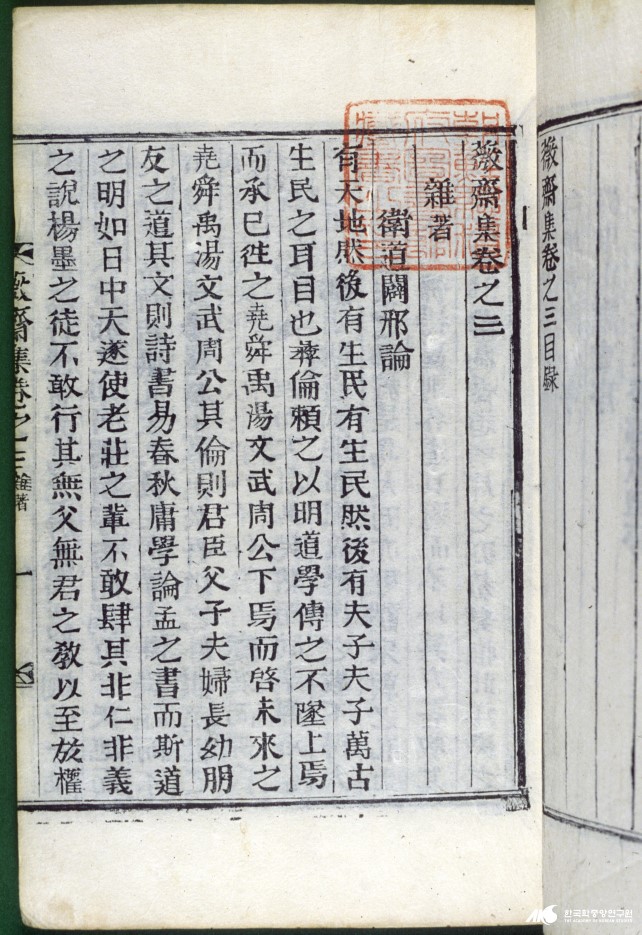 薇齋集卷之三目錄
薇齋集卷之三
雜著
衛道闢邪論
有天地然後有生民有生民然後有夫子夫子萬古
生民之耳目也彝倫頼之以明道學傳之不墜上焉
而承已徃之堯舜禹湯文武周公下焉而啓未來之
堯舜禹湯文武周公其倫則君臣父子夫婦長幼朋
友之道其文則詩書易春秋庸學論孟之書而斯道
之明如日中天遂使老莊之軰不敢肆其非仁非義
之說楊墨之徒不敢行其無父無君之敎以至於權
薇齋集卷之三 雜著 一
한국학중앙연구원
THE ACADEMY OF KOREAN STUDIES